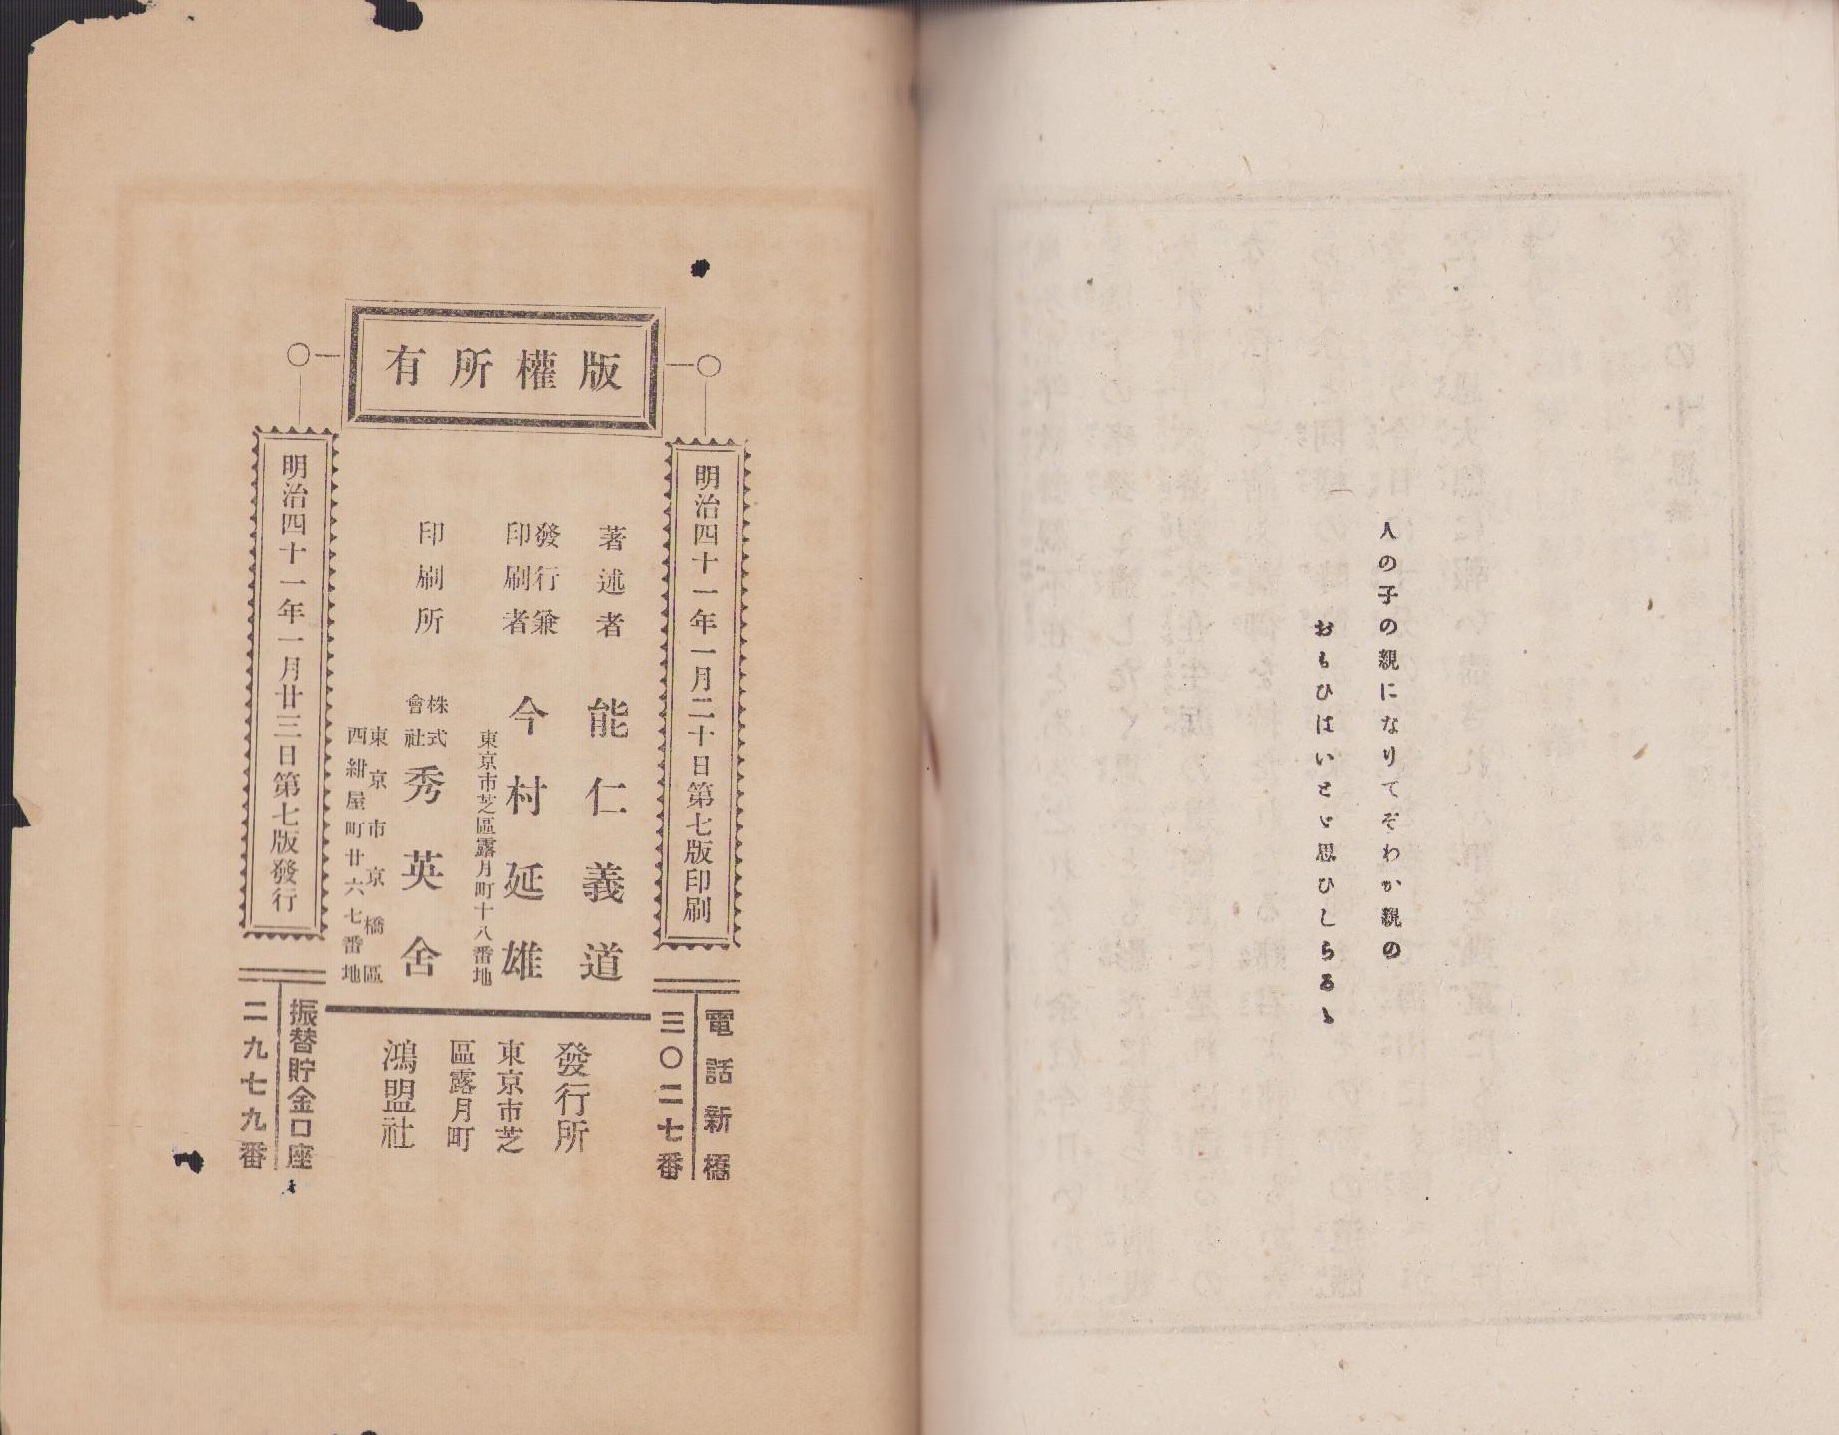 人の子の親になりてぞわか親の
おもひはいとゞ思ひしらるゝ
版權所有
明治四十一年一月二十日第七版印刷
明治四十一年一月廿三日第七版發行
著述者 能仁義道
發行兼
印刷者 今村延雄
東京市芝區露月町十八番地
印刷所 株式
會社 秀英舍
東京市京橋區
西紺屋町廿六七番地
發行所
東京市芝
區露月町
鴻盟社
電話新橋
三〇二七番
振替貯金口座
二九七九番